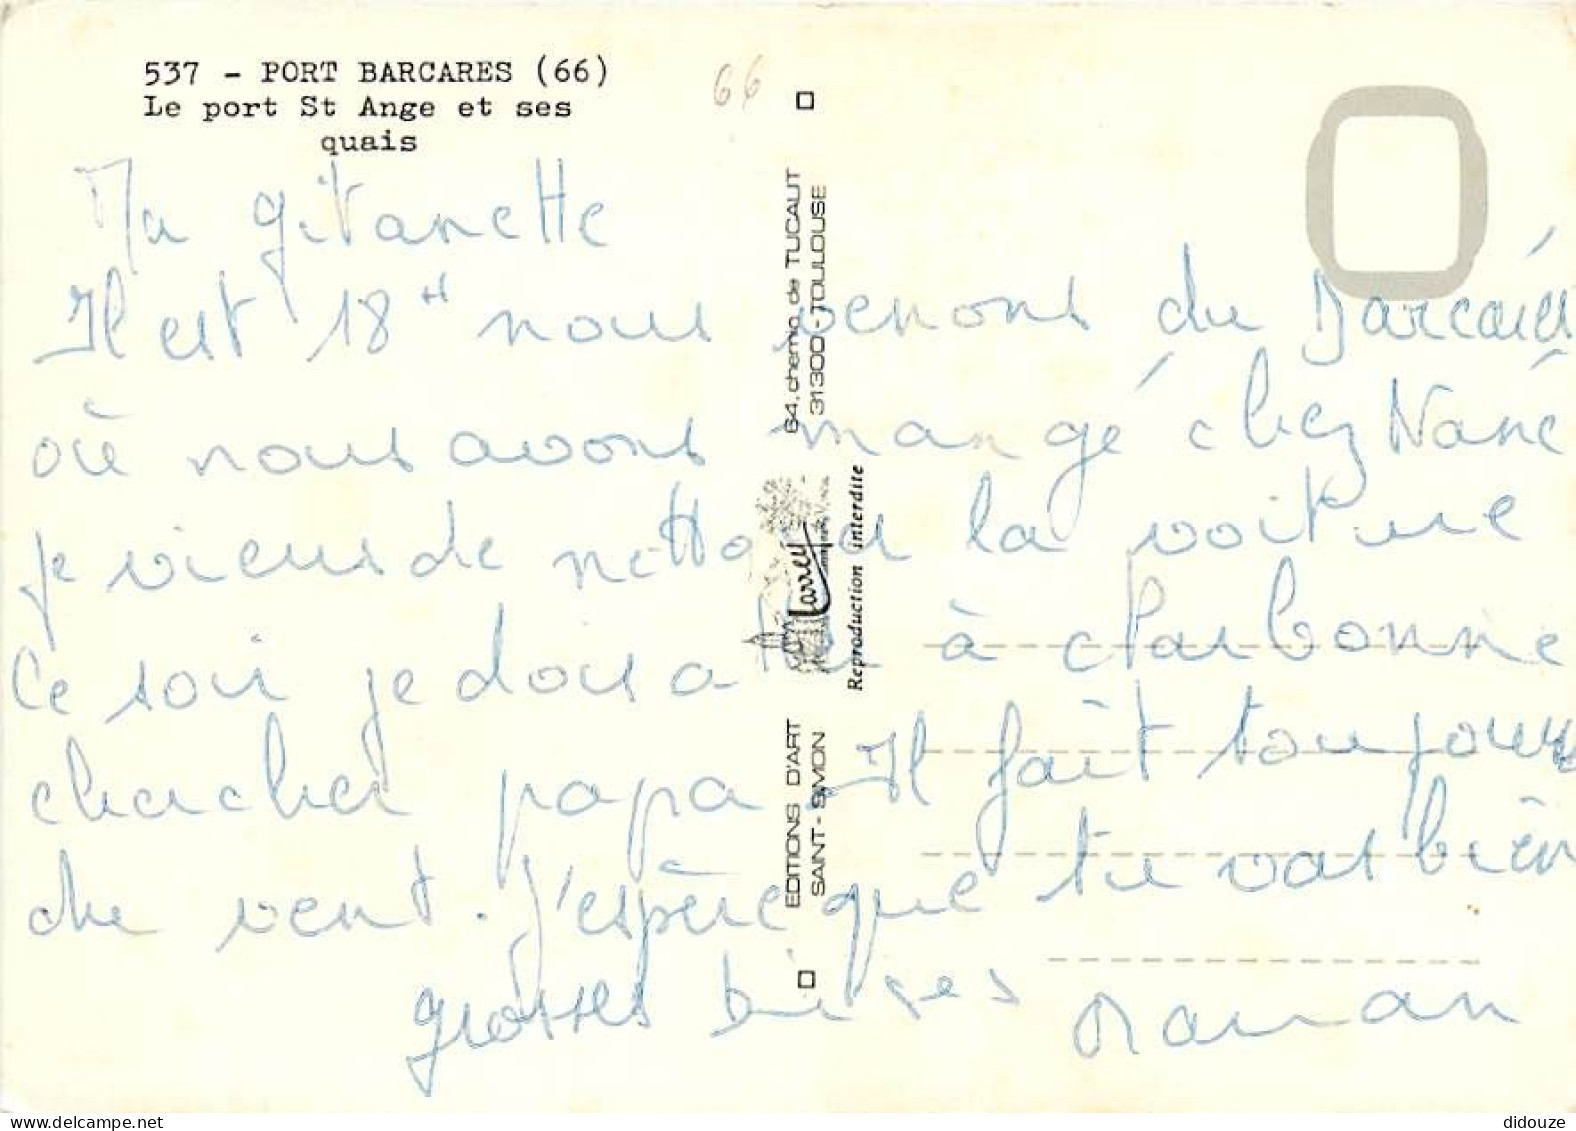 537 - PORT BARCARES (66)
Le port St Ange et ses
quais
66
Ma gitanette
Il est 18H nous venons du Barcarès
où nous avons mangé chez Nané
je viens de nettoyer la voiture
Ce soir je dois aller à Narbonne
chercher papa. Il fait toujours
du vent. J'espère que tu vas bien
grosses bises Maman
64, chemin de TUCAUT
31300 - TOULOUSE
Larrey
Reproduction interdite
EDITIONS D'ART
SAINT-SIMON
didouze